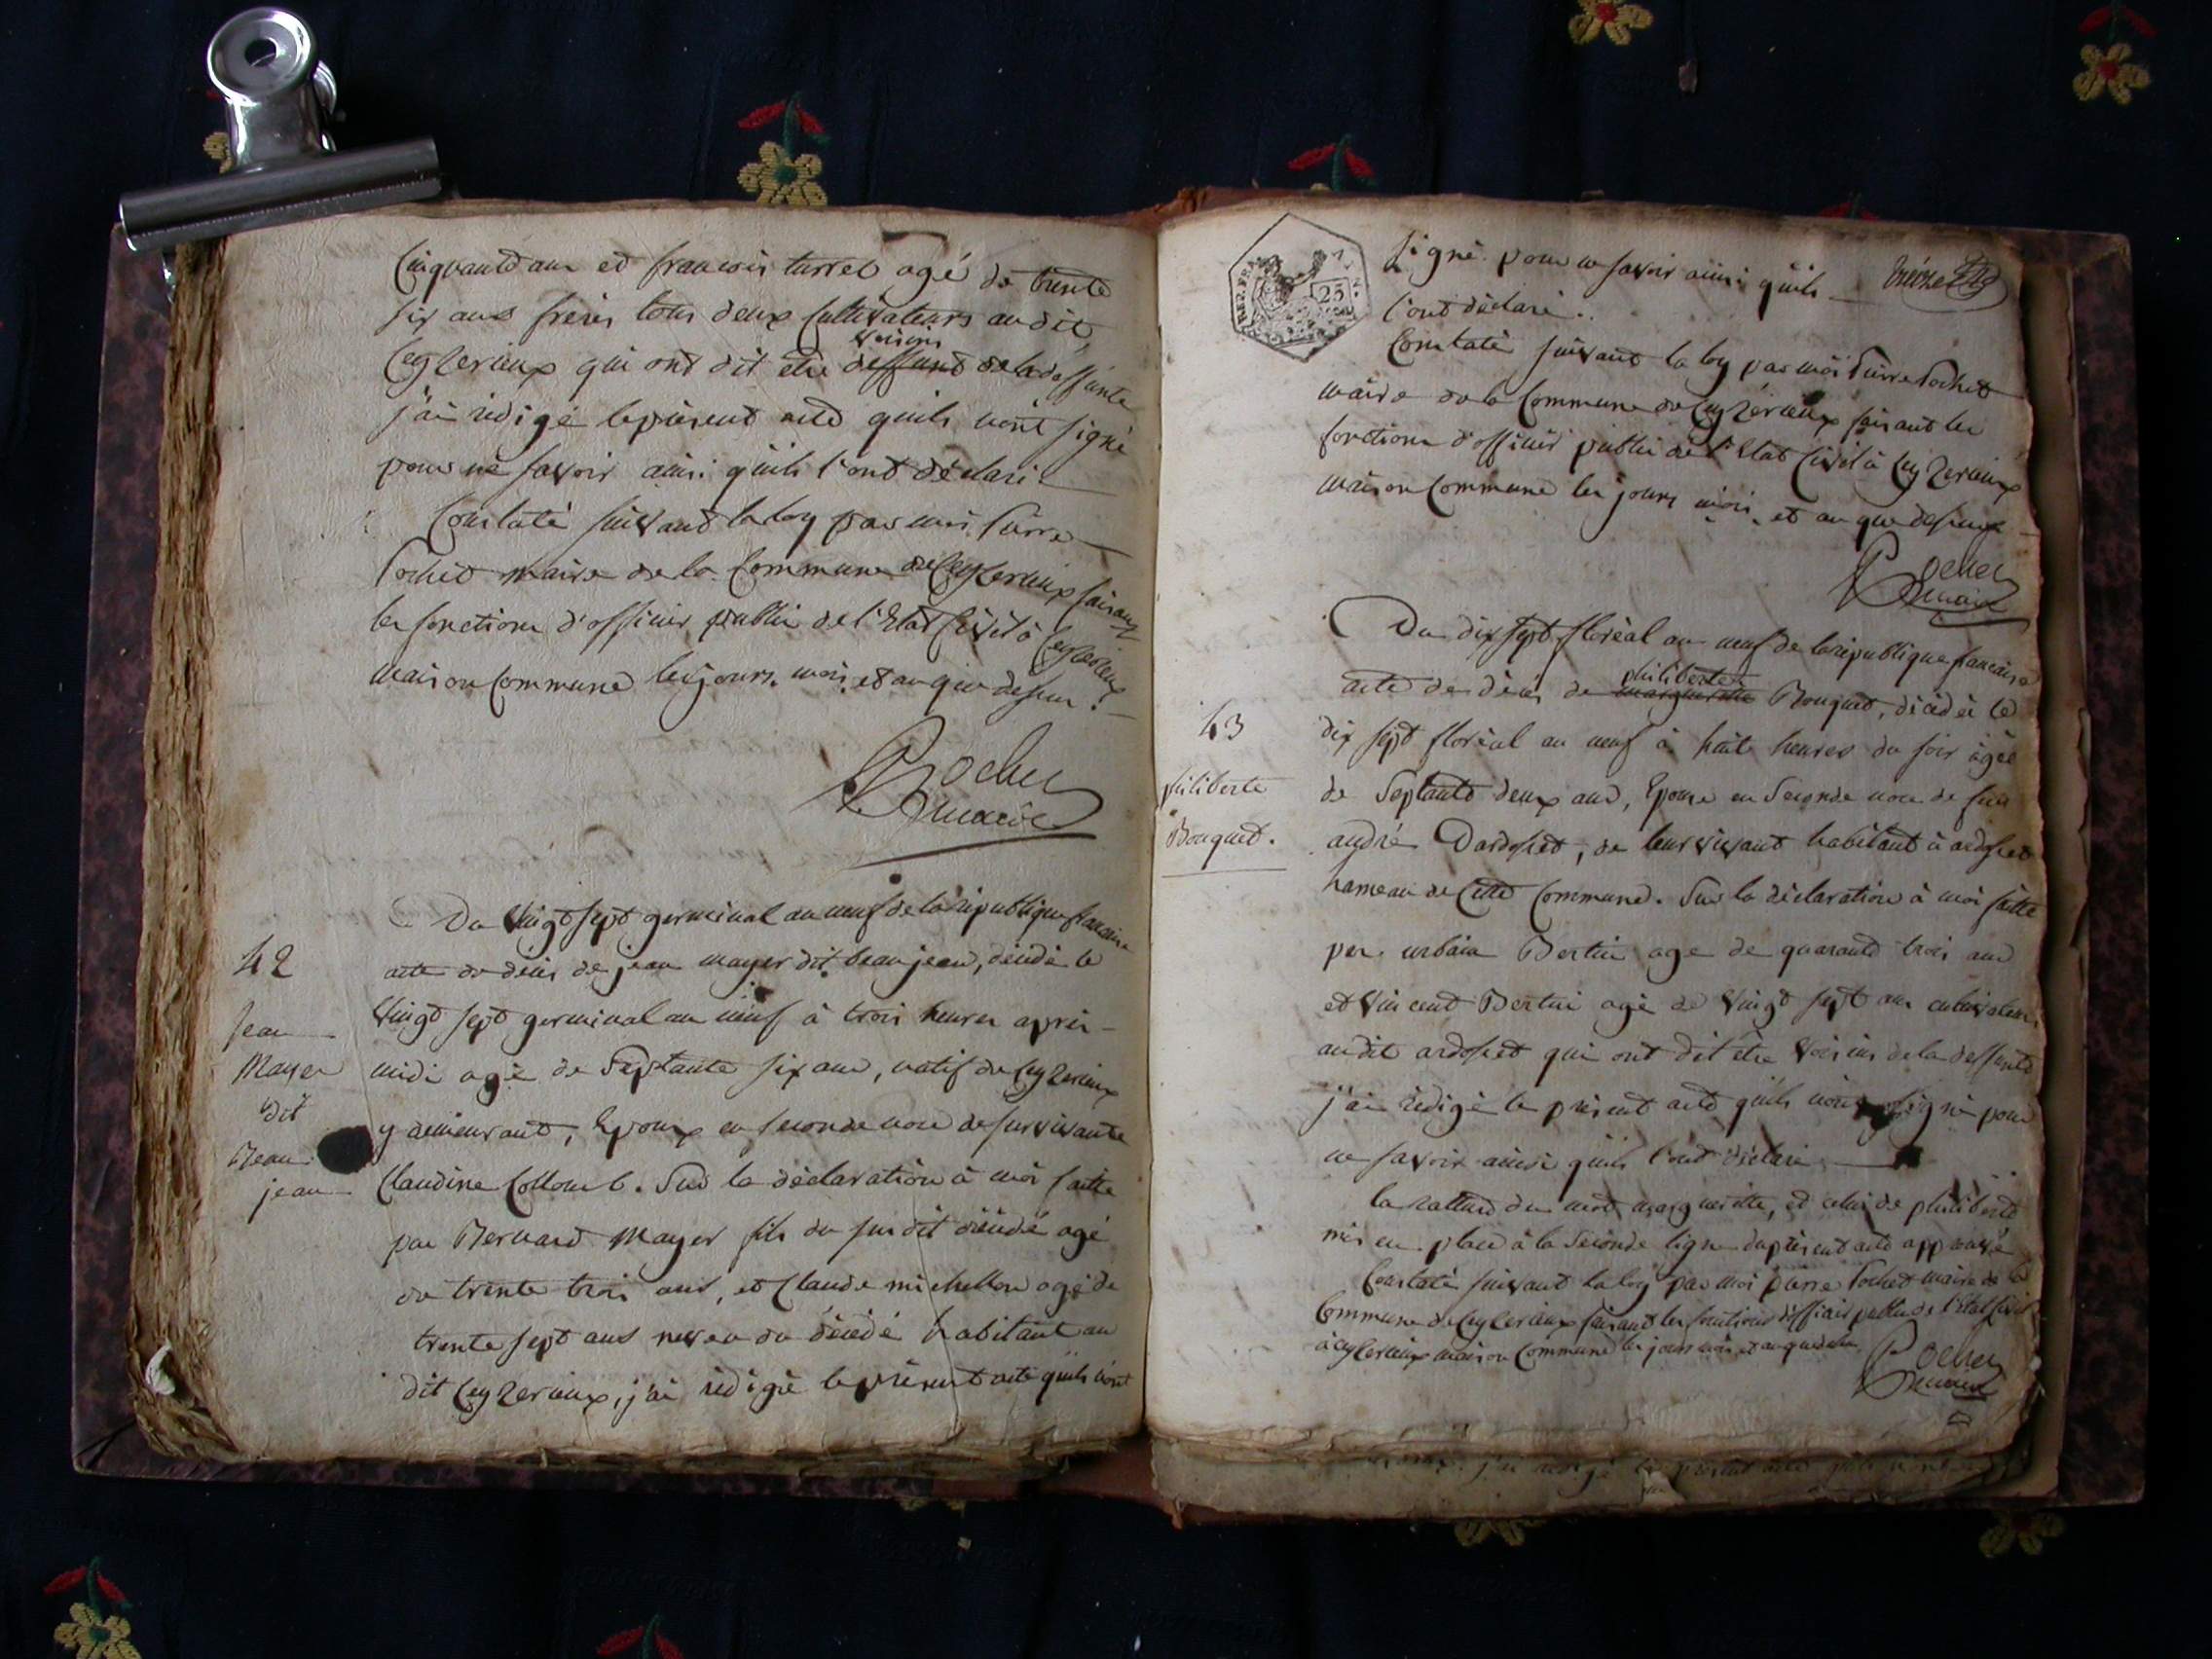 Cinquante ans et francois turrel agé de trente
six ans freres tous deux Cultivateurs au dit
voisins
Ceyzerieux qui ont dit etre deffunt de la deffunte
j'ai rédigé le présent acte quils n'ont signé
pour ne savoir ainsi quils l'ont déclaré
Constaté suivant la loy par moi Pierre
Pochet maire de la Commune de Ceyzerieux faisant
les fonctions d'officier public de l'Etat Civil à Ceyzerieux
maison Commune les jours, mois et an que dessus.
Pochet
maire
Du Vingt sept germinal an neuf de la république francaise
42
acte de décés de jean mayer dit beaujean, décédé le
Vingt sept germinal an neuf à trois heures aprés
jean
Mayer
dit
Beau
jean
midi agé de Septante six ans, natif de Ceyzerieux
y demeurant, Epoux en seconde noce de survivante
Claudine Collomb. Sur la déclaration à moi faitte
par Bernard Mayer fils du susdit décédé agé
de trente trois ans, et Claude michellon agé de
trente sept ans neveu du décédé habitant au
dit Ceyzerieux, j'ai rédigé le présent acte quils n'ont
REP. FRA.
25
treize
signé pour ne savoir ainsi quils
l'ont déclaré.
Constaté suivant la loy par moi Pierre Pochet
maire de la Commune de Ceyzérieux faisant les
fonctions d'officier public de l'Etat Civil à Ceyzerieux
maison Commune les jours mois et an que dessus
Pochet
maire
Du dix sept floréal an neuf de la république francaise
philiberte
acte de décés de margueritte Bouquet, décédée le
43
dix sept floréal an neuf à huit heures du soir agée
philiberte
Bouquet.
de Septante deux ans, Epouse en Seconde noce de feu
andré Dardoset, de leur vivant habitant à ardoset
hameau de Cette Commune. Sur la déclaration à moi faitte
par urbain Bertin agé de quarante trois ans
et Vincent Bertin agé de Vingt sept ans cultivateurs
au dit ardoset qui ont dit etre Voisins de la deffunte
j'ai rédigé le présent acte quils n'ont signé pour
ne savoir ainsi quils l'ont déclaré
la rature du mot margueritte, et celui de philiberte
mis en place à la Seconde ligne du présent acte approuvé
Constaté suivant la loy par moi pierre Pochet maire de la
Commune de Ceyzerieux faisant les fonctions d'officier public de l'Etat Civil
à Ceyzerieux maison Commune les jours mois et an que dessus
Pochet
maire
j'ai rédigé le présent acte quils n'ont